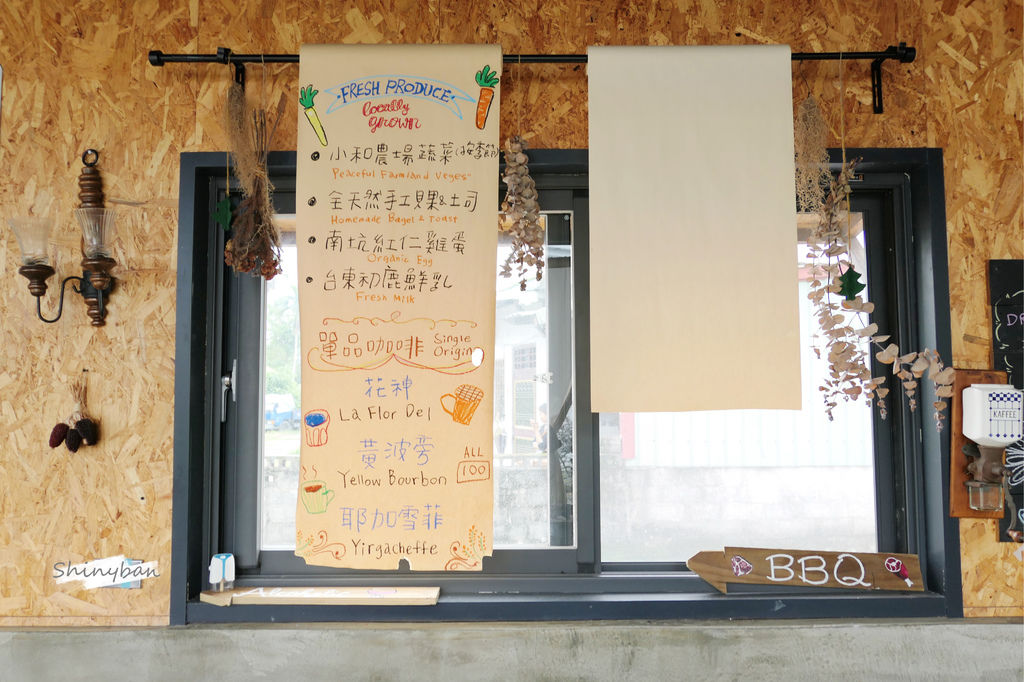 FRESH PRODUCE
locally
grown
小和農場蔬菜(按季節)
Peaceful Farmland Veges
全天然手工貝果&土司
Homemade Bagel & Toast
南坑紅仁雞蛋
Organic Egg
台東初鹿鮮乳
Fresh Milk
單品咖啡 Single
Origin
花神
La Flor Del
黃波旁
Yellow Bourbon
ALL
100
耶加雪菲
Yirgacheffe
KAFFEE
BBQ
Shinyban